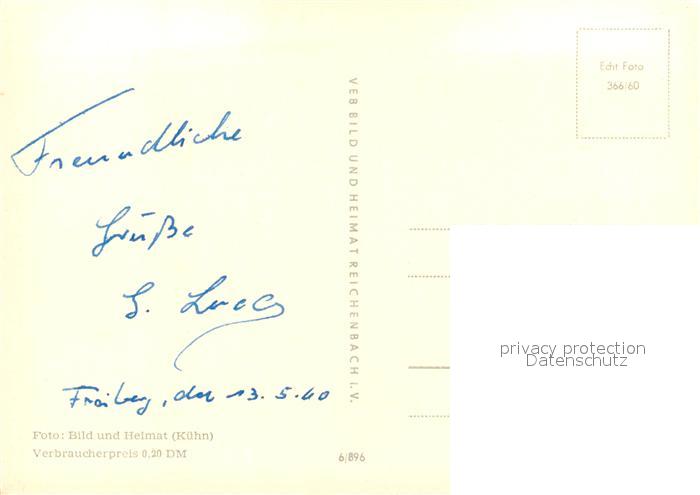 Freundliche
Grüße
Freiberg, den 13.5.60
Foto: Bild und Heimat (Kühn)
Verbraucherpreis 0,20 DM
VEB BILD UND HEIMAT REICHENBACH i. V.
6/896
Echt Foto
366/60
privacy protection
Datenschutz